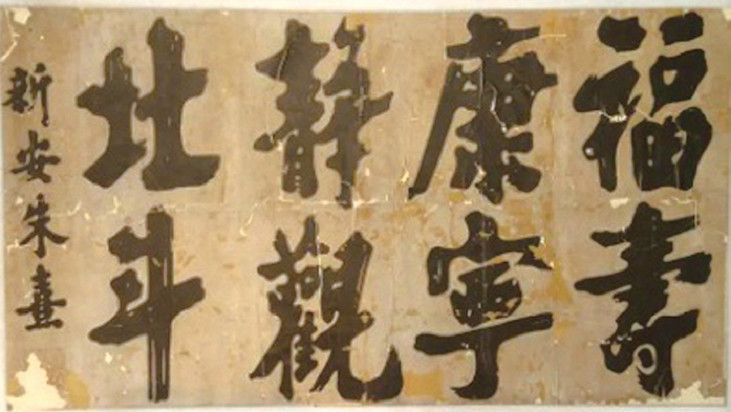 福壽
康寧
静觀
北斗
新安朱熹